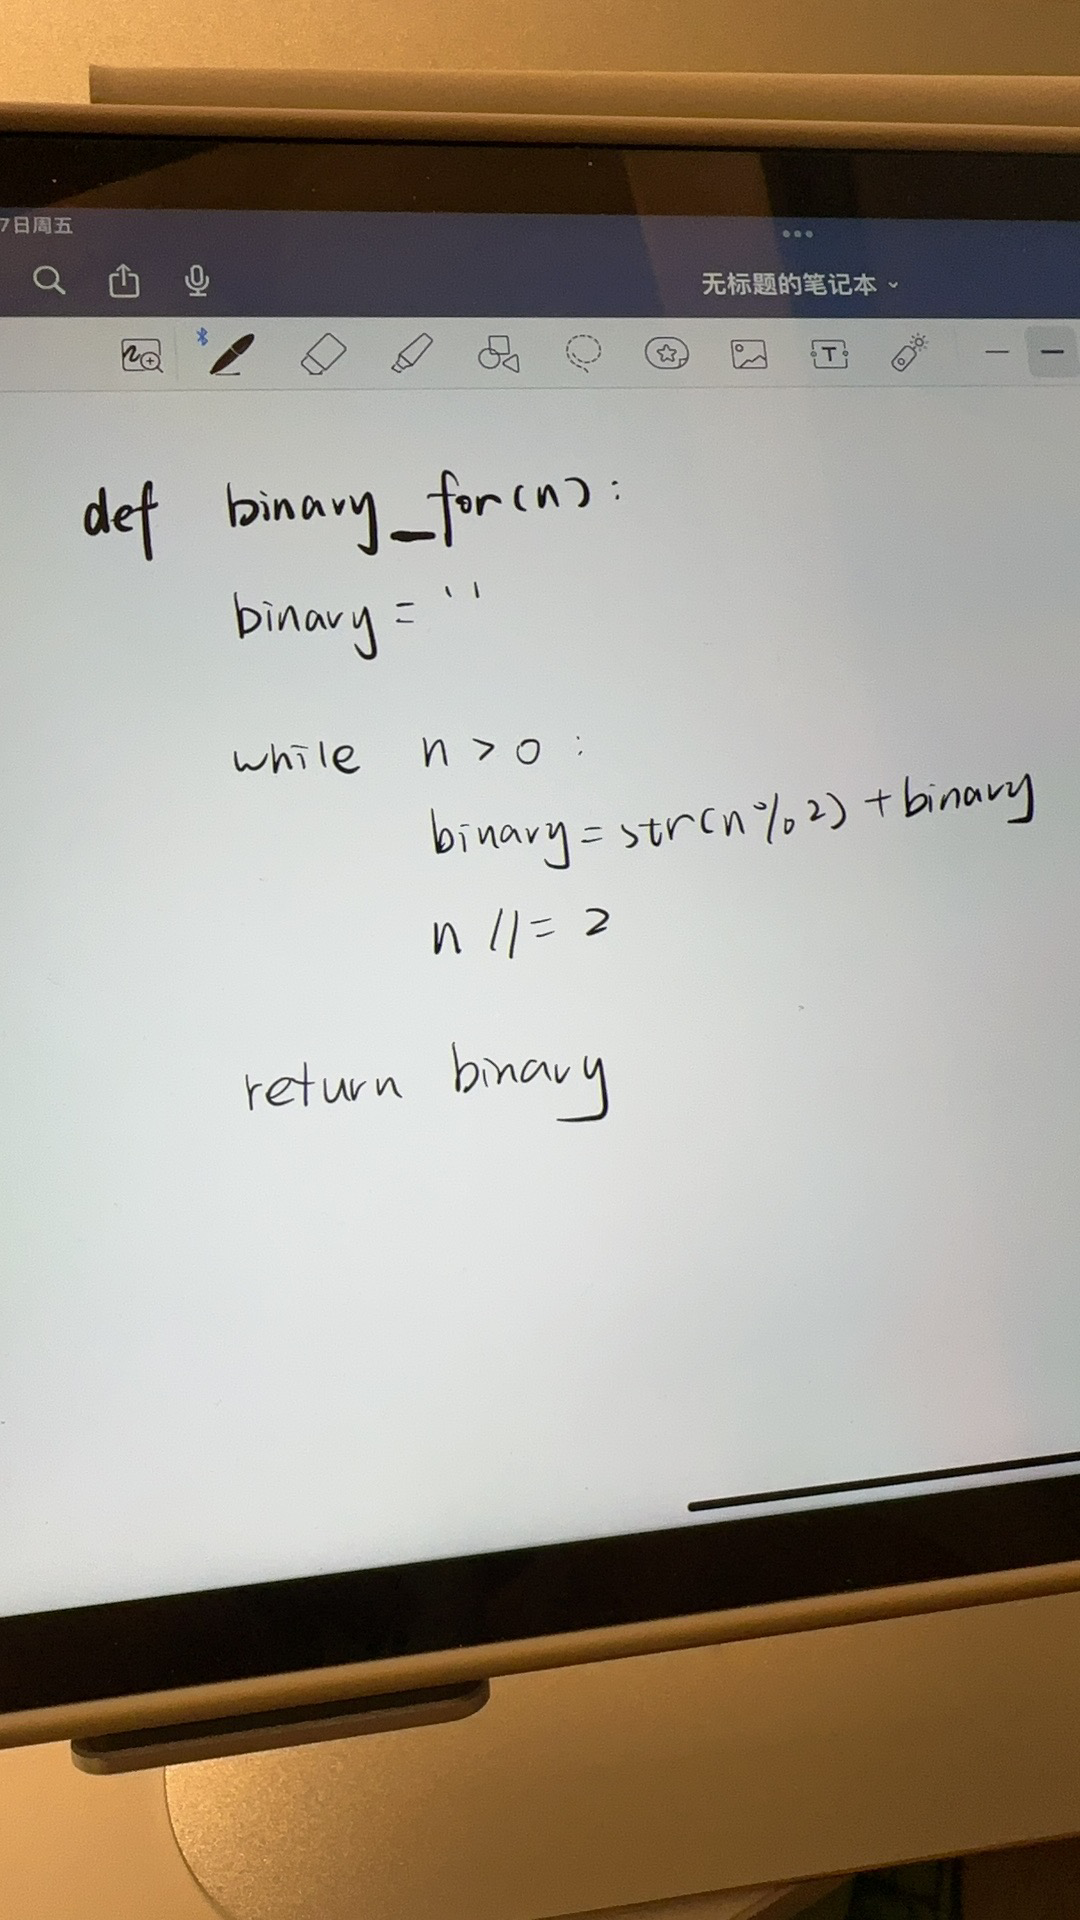 7日周五
无标题的笔记本
T
def binary_for(n):
binary = ''
while n > 0 :
binary = str(n%2) + binary
n //= 2
return binary